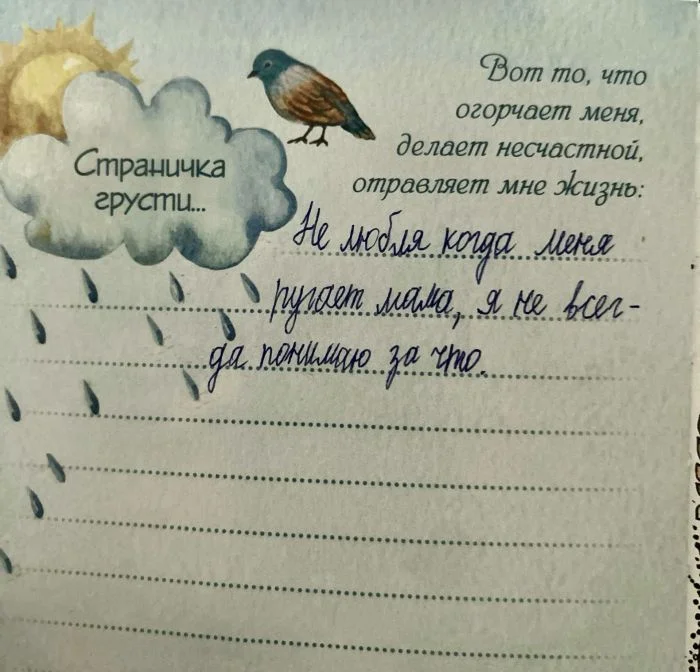 Страничка
грусти...
Вот то, что
огорчает меня,
делает несчастной,
отравляет мне жизнь:
Не любля когда меня
ругает мама, я не всег-
да понимаю за что.